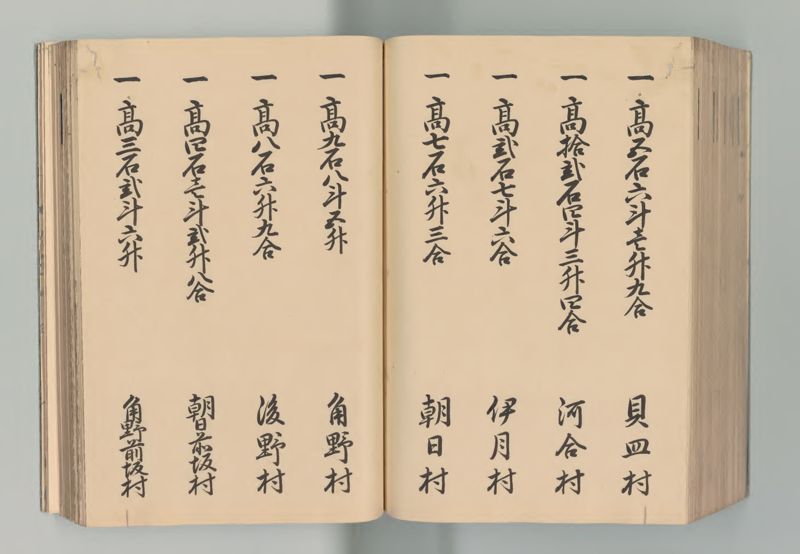 一 高五石六斗壱升九合 貝皿村
一 高拾弐石四斗三升四合 河合村
一 高弐石七斗六合 伊月村
一 高七石六升三合 朝日村
一 高九石八斗五升 角野村
一 高八石六升九合 後野村
一 高四石壱斗弐升八合 朝日前坂村
一 高三石弐斗六升 角野前坂村